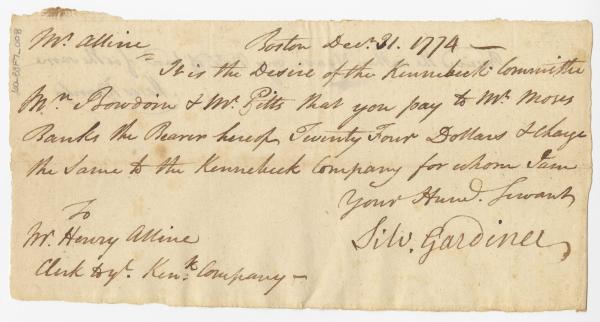 Mr. Alline Boston Decr. 31. 1774 —
It is the Desire of the Kennebeck Committee
Mr. Bowdoin & Mr. Pitts that you pay to Mr. Moses
Banks the Bearer hereof Twenty Four Dollars & Charge
the Same to the Kennebeck Company for whom I am
Your Hum. Servant
Silv. Gardiner
To
Mr. Henry Alline
Clerk to ye. Kenk. Company —